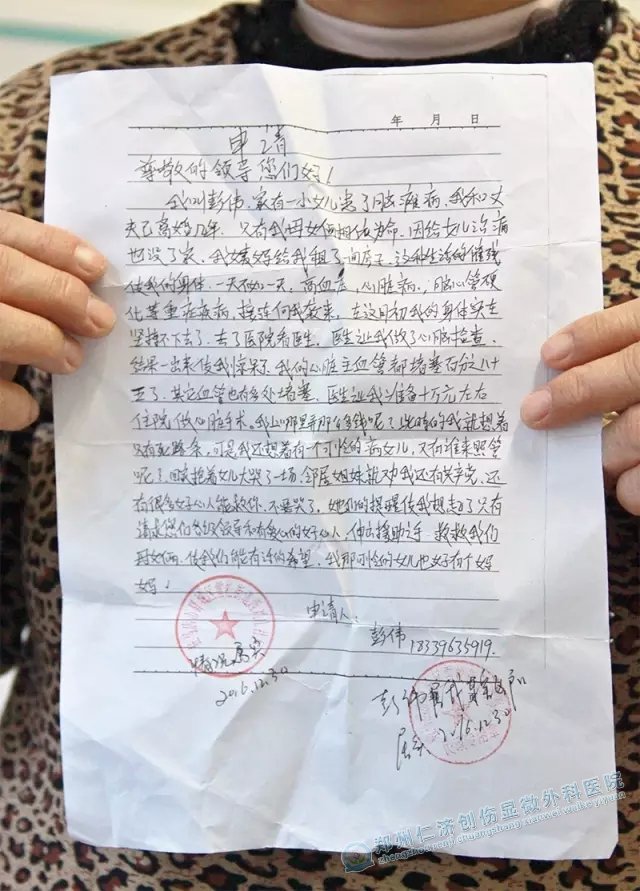 年 月 日
申请
尊敬的领导您们好！
我叫彭伟，家有一小女儿患了脑瘫病，我和丈
夫已离婚几年，只有我母女俩相依为命，因给女儿治病
也没了家，我娘给我租了一间房子，这种生活的
使我的身体一天不如一天，高血压，心脏病，脑心管硬
化等重症疾病，接连向我袭来，在这月初我的身体实在
坚持不下去了，去了医院看医生，医生让我做了心脏检查，
结果一出来使我惊呆了，我的心脏主血管都堵塞百分八十
至了，其它血管也有多处堵塞，医生让我准备十万元左右
住院做心脏手术，我上哪里弄那么多钱呢？此时的我就想着
只有死路一条，可是我还想着有一个可怜的病女儿，又有谁来照管
呢？回来抱着女儿大哭了一场，邻居姐妹就劝我还有共产党，还
有很多好心人能救你，不要哭了，她们的提醒使我想起了只有
请求您们各级领导和有爱心的好心人，伸出援助之手，救救我们
母女俩，使我们能有活的希望，我那可怜的女儿也好有个妈
妈！
申请人：
彭伟 18339635919.
情况属实
2016.12.30
彭伟
属实 2016.12.30
郑州仁济创伤显微外科医院
zhengzhou renji chuangshang xianwei waike yiyuan